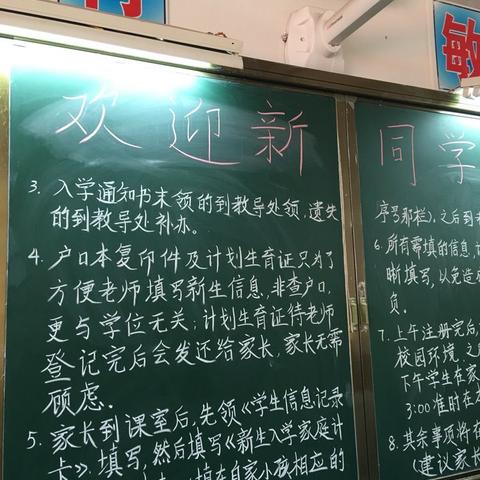 敏
欢迎新
同学
3. 入学通知书未领的到教导处领,遗失
的到教导处补办。
4. 户口本复印件及计划生育证只为了
方便老师填写新生信息,非查户口,
更与学位无关;计划生育证待老师
登记完后会发还给家长,家长无需
顾虑.
5. 家长到课室后,先领《学生信息记录
卡》填写,然后填写《新生入学家庭计
填在自家小孩相应的
序号那栏),之后到
6. 所有需填的信息,
晰填写,以免造成
负.
7. 上午注册完后,
校园环境.之
下午学生在家
3:00准时在本
8. 其余事项将在
(建议家长